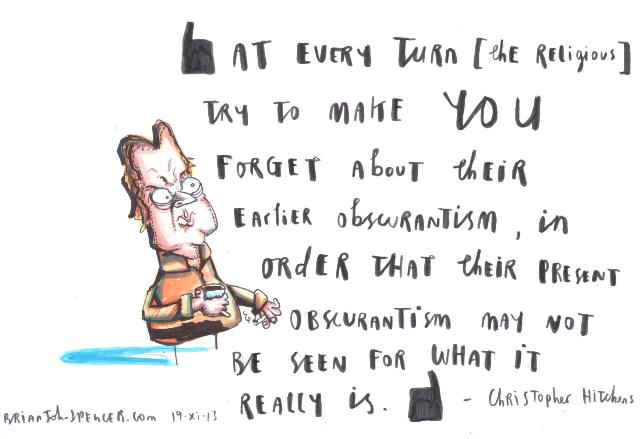 AT EVERY TURN [thE RELigious]
TRY TO MAKE YOU
FORGET About thEiR
EARLiER obscuRANTiSM, in
ORdER THAT thEiR PRESENT
OBSCURANTiSM MAY NOT
BE SEEN FOR WHAT iT
REALLY is. - ChRiSTopher HiTchens
BRiAN JOhN-SPENCER.com 19-xi-13